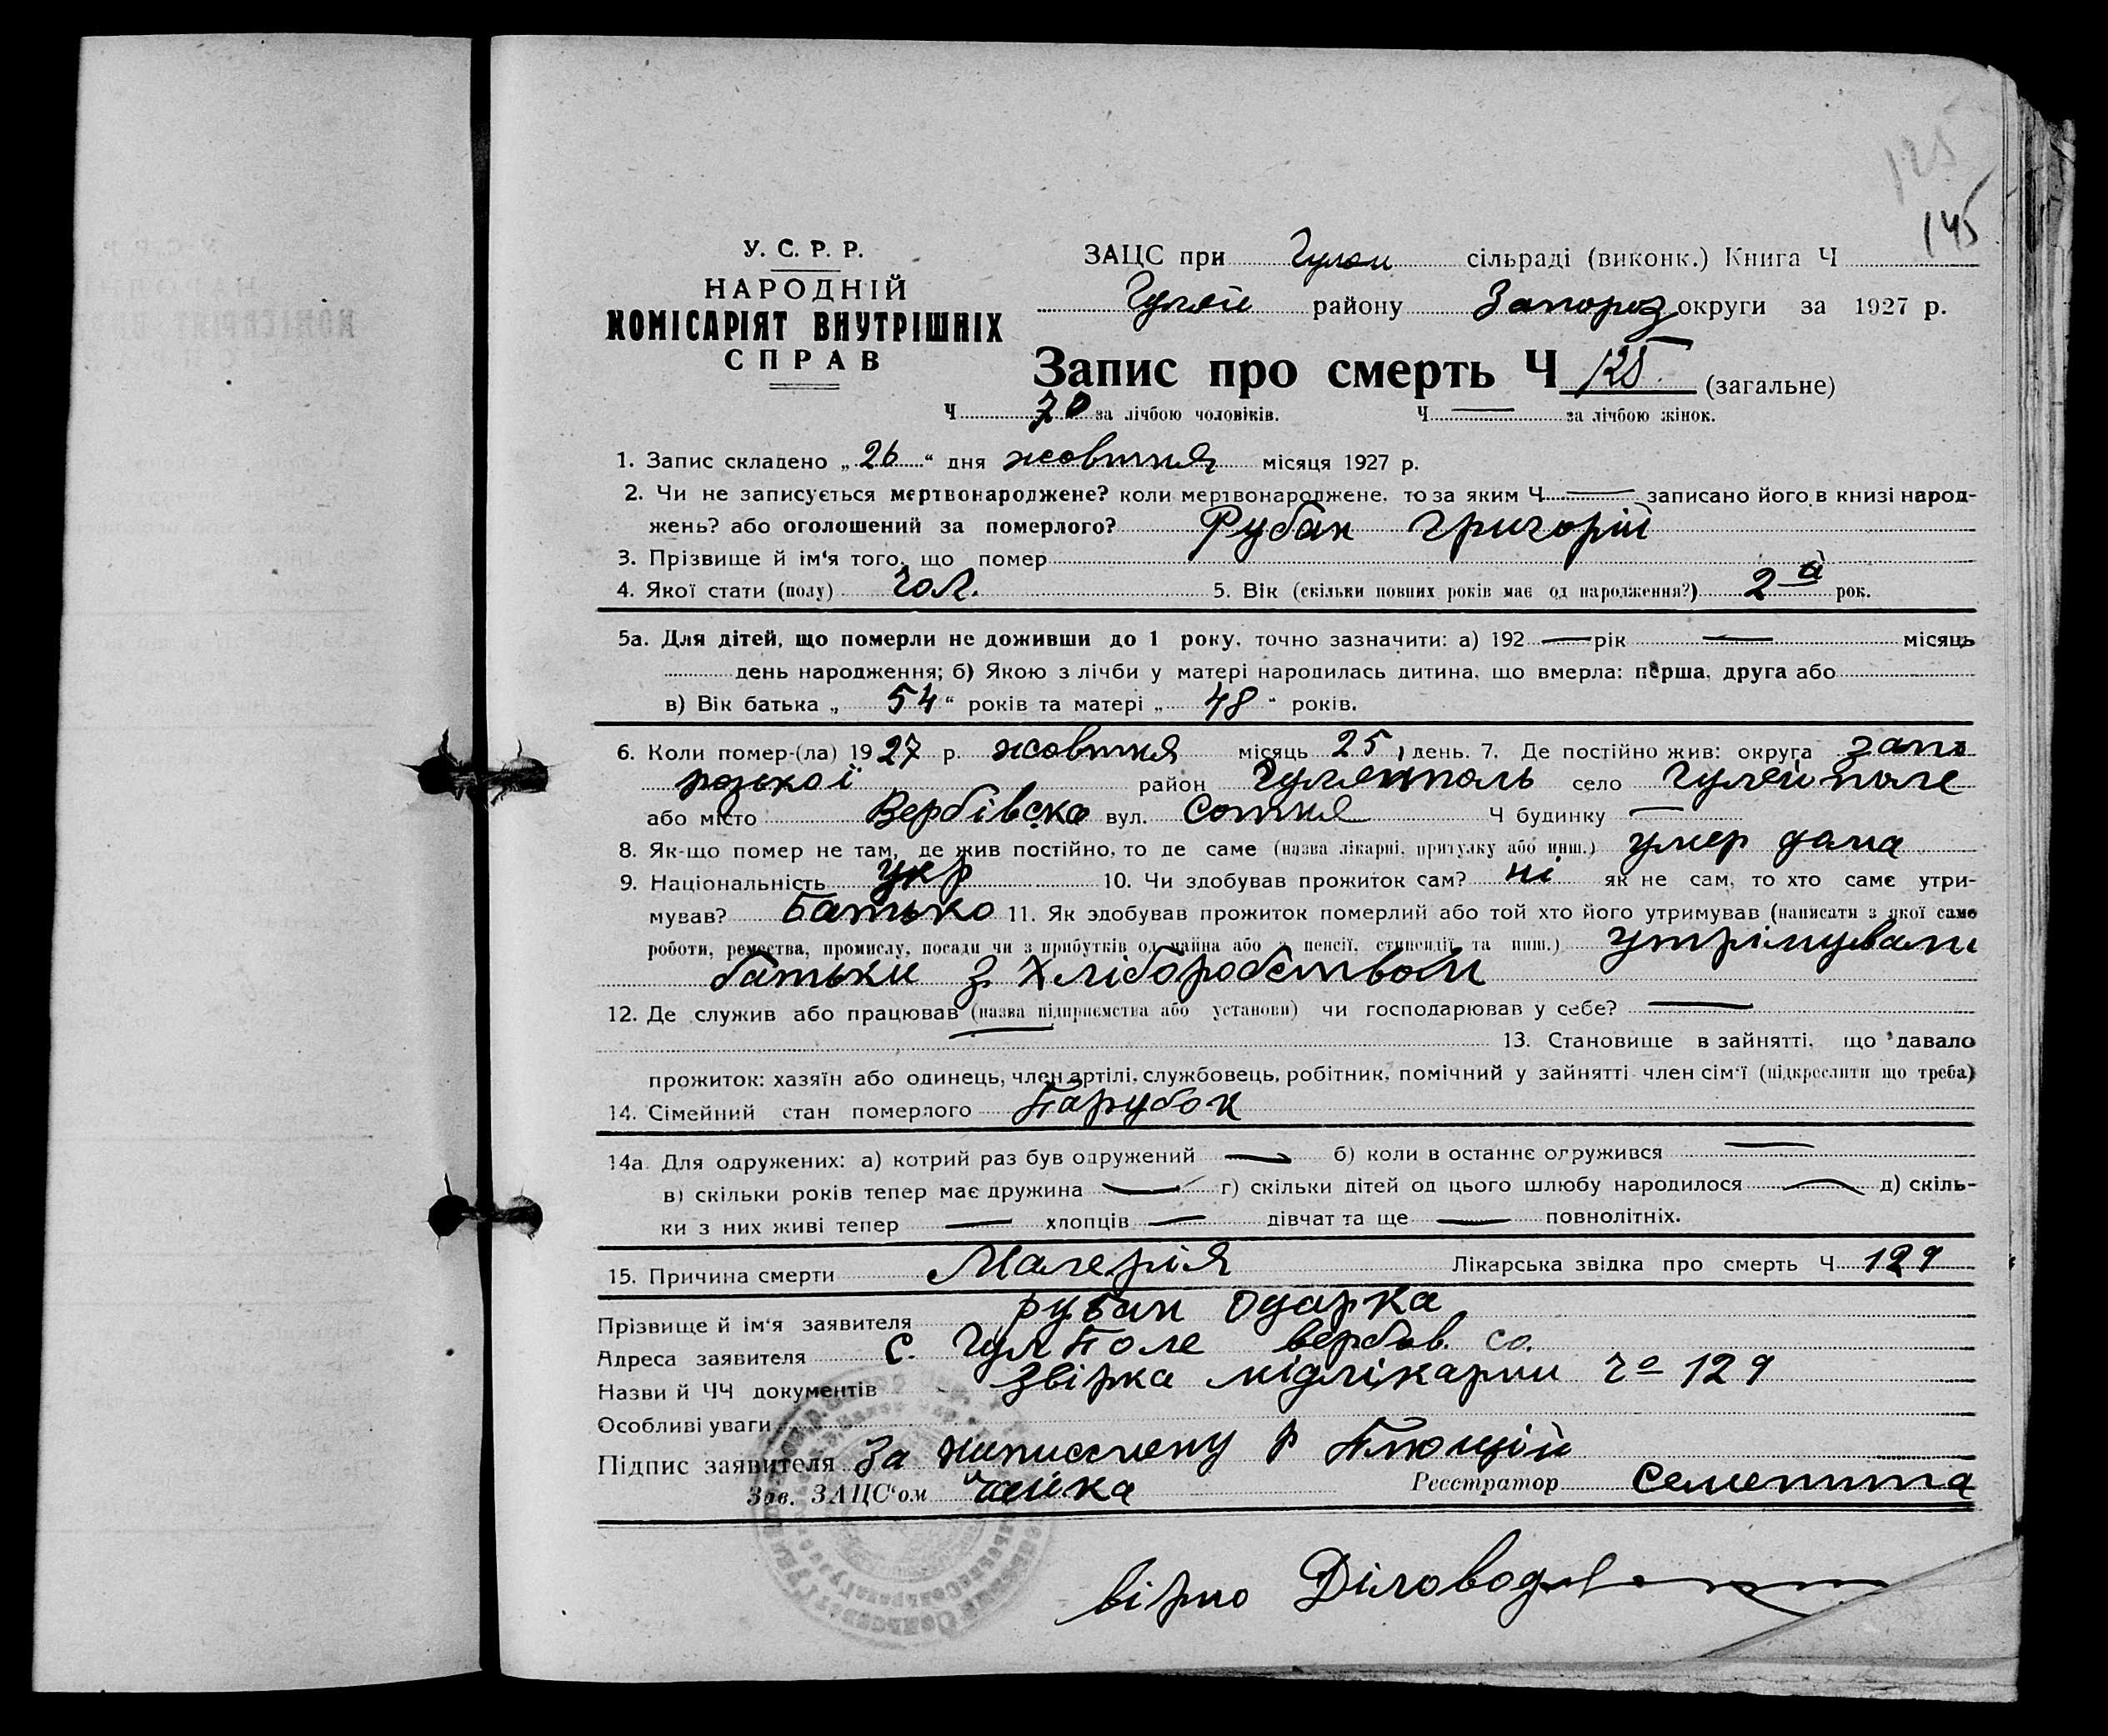 125
145
У. С. Р. Р.
НАРОДНІЙ
КОМІСАРІЯТ ВНУТРІШНІХ
СПРАВ
ЗАЦС при Гуляй сільраді (виконк.) Книга Ч
Гуляй району Запороз округи за 1927 р.
Запис про смерть Ч 125 (загальне)
Ч 70 за лічбою чоловіків. Ч — за лічбою жінок.
1. Запис складено „ 26 “ дня жовтня місяця 1927 р.
2. Чи не записується мертвонароджене? коли мертвонароджене, то за яким Ч — записано його в книзі народ-
жень? або оголошений за померлого? Рубан Григорій
3. Прізвище й ім‘я того, що помер
4. Якої стати (полу) Чол. 5. Вік (скільки повних років має од народження?) 2 а рок.
5а. Для дітей, що померли не доживши до 1 року, точно зазначити: а) 192 — рік — місяць
день народження; б) Якою з лічби у матері народилась дитина, що вмерла: перша, друга або
в) Вік батька „ 54 “ років та матері „ 48 “ років.
6. Коли помер-(ла) 1927 р. жовтня місяць 25 день. 7. Де постійно жив: округа запо
розької район Гуляйполь село Гуляйполе
або місто Вербівска вул. Сотня Ч будинку —
8. Як-що помер не там, де жив постійно, то де саме (назва лікарні, притулку або инш.) умер дома
9. Національність укр 10. Чи здобував прожиток сам? ні як не сам, то хто саме утри-
мував? Батько 11. Як здобував прожиток померлий або той хто його утримував (написати з якої саме
роботи, ремества, промислу, посади чи з прибутків од майна або з пенсії, стипендії та инш.) утрімували
батьки з Хліборобством
12. Де служив або працював (назва підприємства або установи) чи господарював у себе? —
— 13. Становище в зайнятті, що давало
прожиток: хазяїн або одинець, член артілі, службовець, робітник, помічний у зайнятті член сім‘ї (підкреслити що треба)
14. Сімейний стан померлого Парубок
14а. Для одружених: а) котрий раз був одружений — б) коли в останнє огружився —
в) скільки років тепер має дружина — г) скільки дітей од цього шлюбу народилося — д) скіль-
ки з них живі тепер — хлопців — дівчат та ще — повнолітніх.
15. Причина смерти Малерія Лікарська звідка про смерть Ч 129
Прізвище й ім‘я заявителя рубан Одарка
Адреса заявителя с. Гул Поле вербов. со.
Назви й ЧЧ документів Звірка підлікарпи 129
Особливі уваги
Підпис заявителя За
Зав. ЗАЦС‘ом Чайка Реєстратор
вірно Діловод